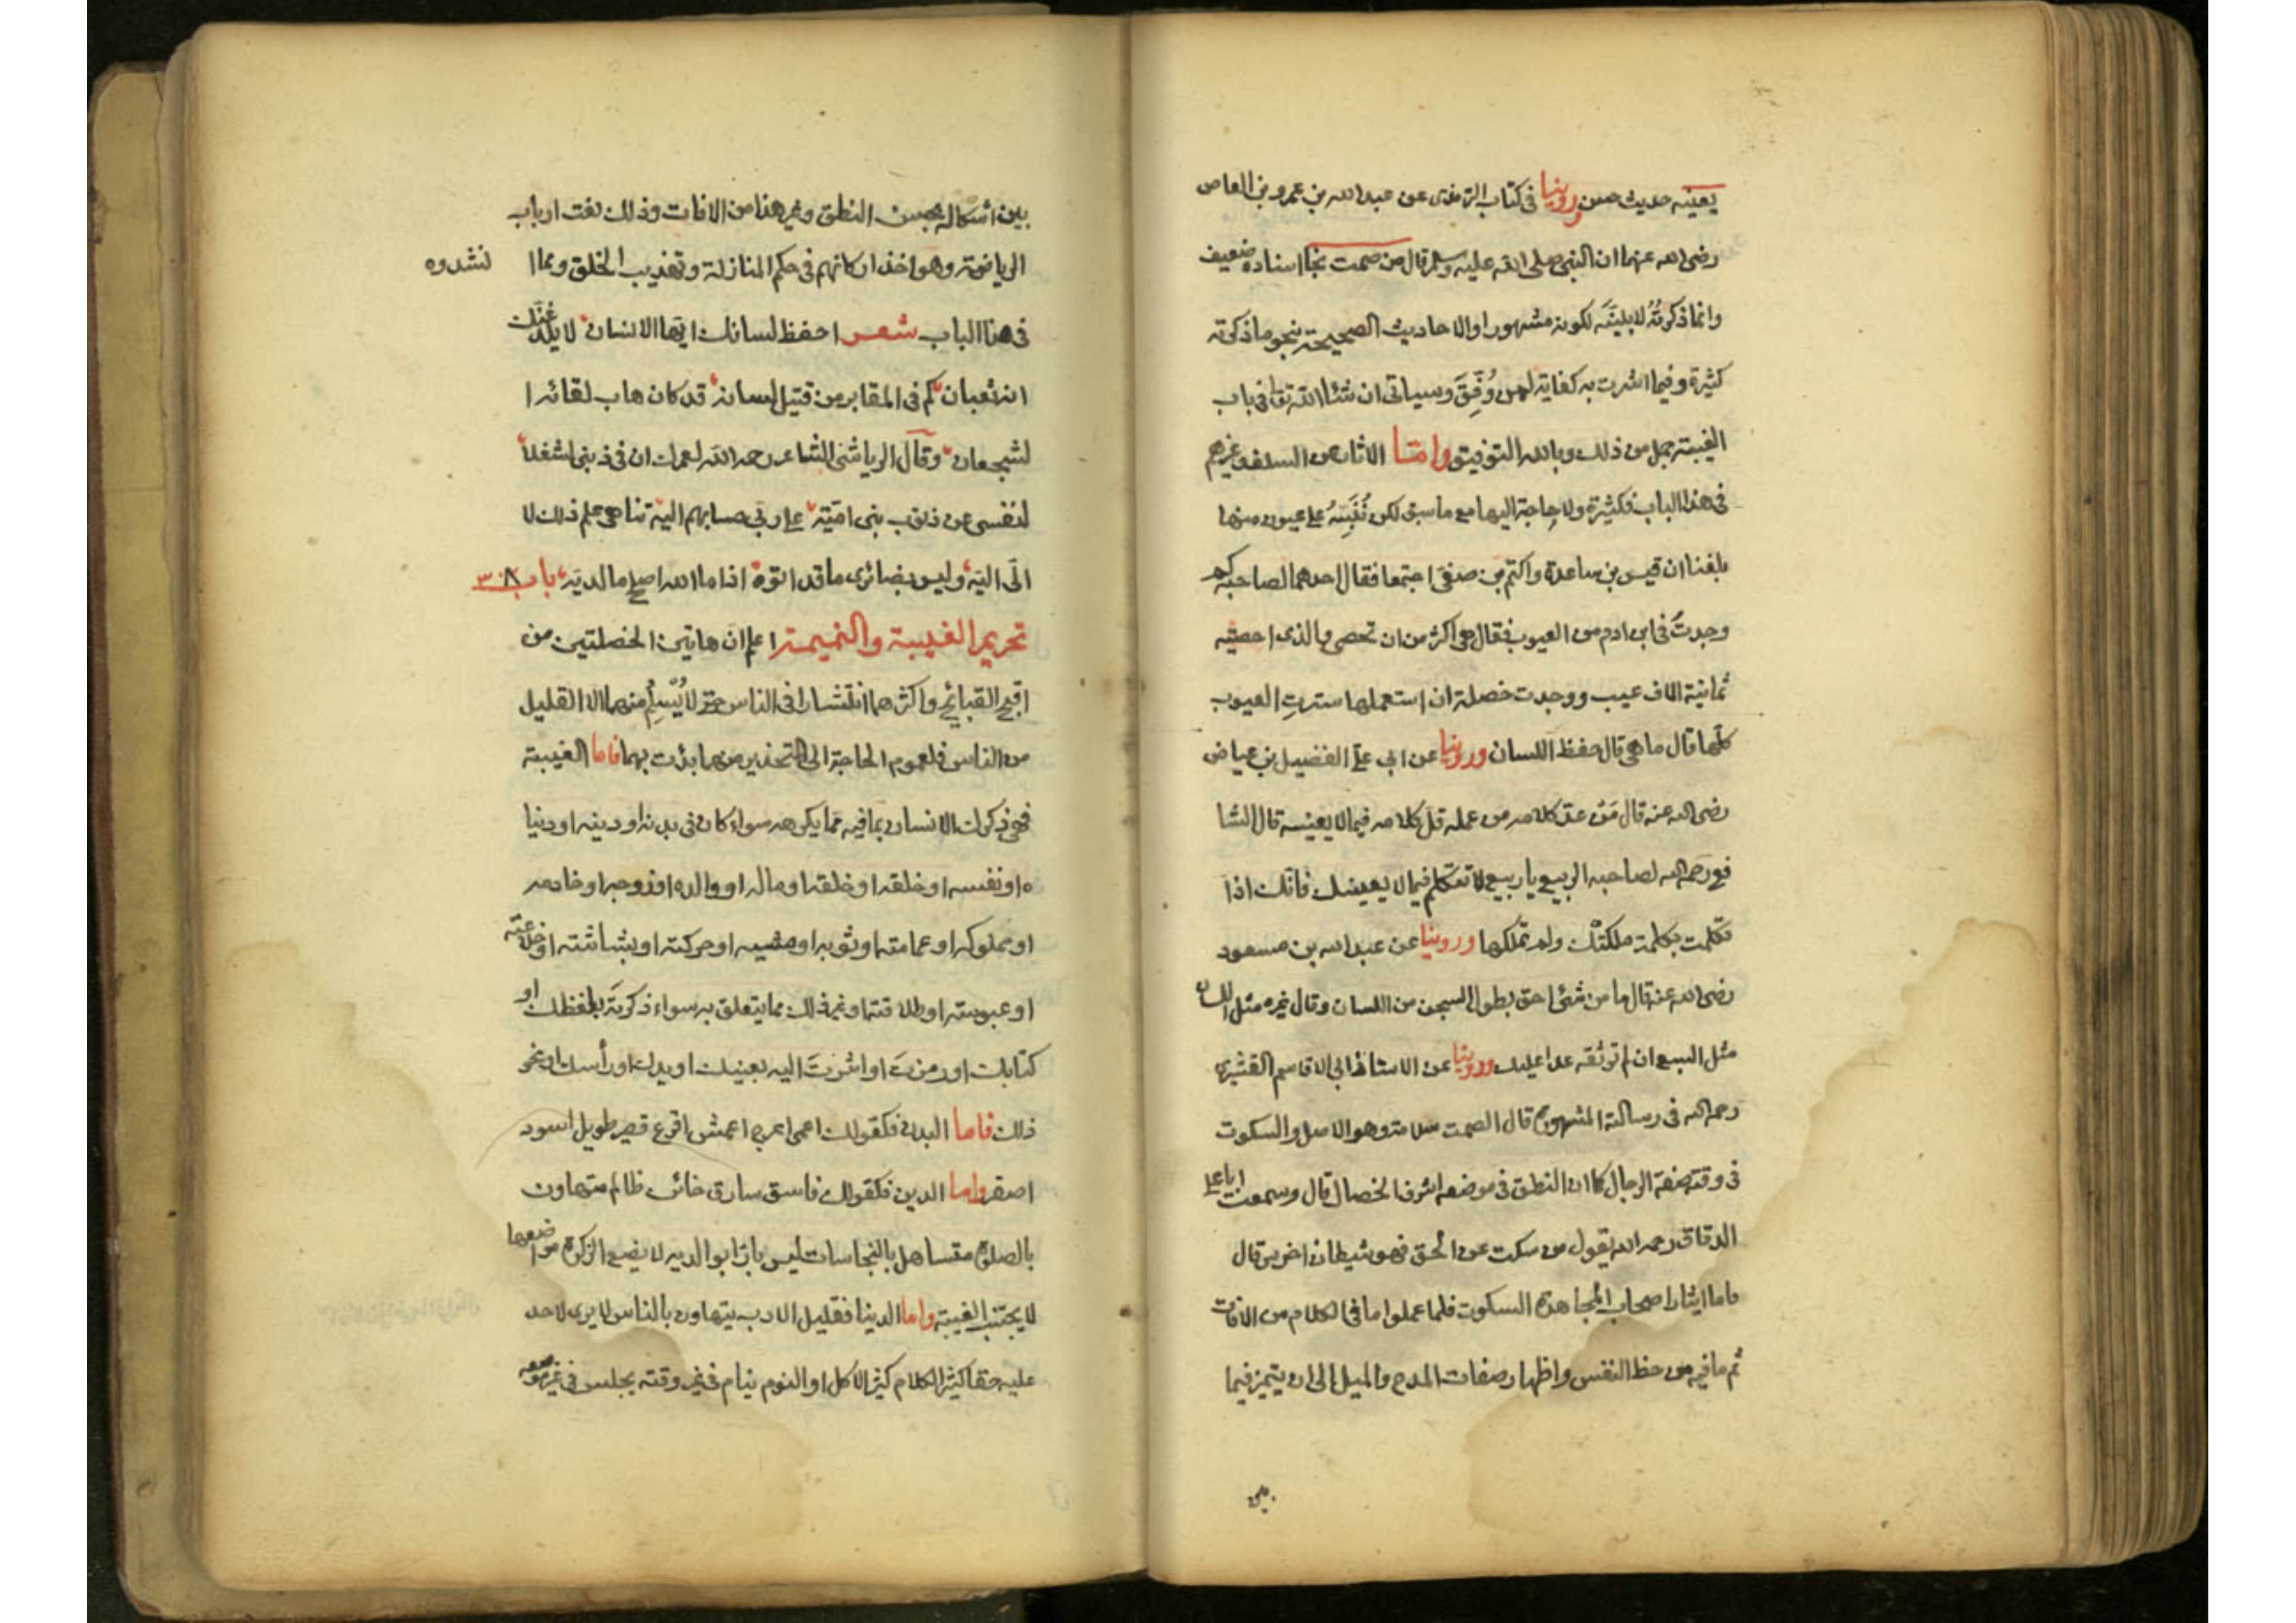 يعنيه حديث حسن وروينا في كتاب الترمذي عن عبد الله بن عمرو بن العاص
رضي الله عنهما ان النبي صلى الله عليه وسلم قال من صمت نجا اسناده ضعيف
وانما ذكرتُه لابينَه لكونه مشهورا والاحاديث الصحيحة بنحو ما ذكرته
كثيرة وفيما اشرت به كفاية لمن وُفِّقَ وسياتي ان شاء الله تعا في باب
الغيبة جمل من ذلك وبالله التوفيق واما الاثار عن السلف وغيرهم
في هذا الباب فكثيرة ولا حاجة اليها مع ما سبق لكن نُنَبِّهُ على عيون منها
بلغنا ان قيس بن ساعدة واكثم بن صيفي اجتمعا فقال احدهما لصاحبه كم
وجدتَ في ابن ادم من العيوب فقال هي اكثر من ان تحصى والذى احصيته
ثمانية الاف عيب ووجدت خصلة ان استعملها سترتِ العيوب
كلّها قال ما هي قال حفظ اللسان وروينا عن ابي علي الفضيل بن عياض
رضي الله عنه قال مَنْ عدّ كلامه من عمله قل كلامه فيما لا يعنيه قال الشا
فعي رحمه الله لصاحبه الربيع يا ربيع لا تتكلم فيما لا يعينك فانّك اذا
تكلمت بكلمة ملكتْك ولم تملكها وروينا عن عبد الله بن مسعود
رضي الله عنه قال ما من شئ احق بطول السجن من اللسان وقال غيره مثل اللسان
مثل السبع ان لم توثقه عدا عليك وروينا عن الاستاذ ابي القاسم القشيري
رحمه الله في رسالته المشهورة قال الصمت سلامة وهو الاصل والسكوت
في وقته صفة الرجال كما ان النطق في موضعه اشرف الخصال قال وسمعت ابا علي
الدقاق رحمه الله يقول من سكت عن الحق فهو شيطان اخرس قال
فاما ايثار اصحاب المجاهدة السكوت فلما عملوا ما في الكلام من الافات
ثم ما فيه من حظ النفس واظهار صفات المدح والميل الى ان يتميز فيما
بين
بين اشكاله بحسن النطق وغير هذا من الافات وذلك نعت ارباب
الرياضة وهو احد اركانهم في حكم المنازلة وتهذيب الخلق ومما ا نشدوه
في هذا الباب شعر احفظ لسانك ايها الانسان لا يلدغنك
انه ثعبان كم في المقابر من قتيل لسانه قد كان هاب لقائه ا
لشجعان وقال الرياشي الشاعر رحمه الله لعمرك ان في ذنبي لشغلا
لنفسي عن ذنوب بني امية على ربي حسابهم اليه تناهى علم ذلك لا
الَى اليّه وليس بضائرى ما قد اتوه اذا ما الله اصلح ما لديّه باب ٣٠٨
تحريم الغيبة والنميمة اعلم ان هاتين الخصلتين من
اقبح القبائح واكثرهما انتشارا في الناس حتى لا يُسْلِم منهما الا القليل
من الناس فلعموم الحاجة الى التحذير منهما بدئت بهما فاما الغيبة
فهي ذكرك الانسان بما فيه مما يكرهه سواء كان في بدنه او دينه او دنيا
ه او نفسه او خلقه او خلقه او ماله او والده او زوجه او خادمه
او مملوكه او عمامته او ثوبه او مشيه او حركته او بشاشته او خلاعته
او عبوسته او طلاقته او غير ذلك مما يتعلق به سواء ذكرتَه بلفظك او
كتابك او رمزتَ او اشرتَ اليه بعينك او يدك او رأسك او نحو
ذلك فاما البدن فكقولك اعمى اعرج اعمش اقرع قصير طويل اسود
اصفر واما الدين فكقولك فاسق سارق خائن ظالم متهاون
بالصلوة متساهل بالنجاسات ليس بارّا بوالديه لا يضع الزكوة مواضعها
لا يجتنب الغيبة واما الدنيا فقليل الادب يتهاون بالناس لا يرى لاحد
عليه حقا كثير الكلام كثير الاكل او النوم ينام في غير وقته يجلس في غير موضعه